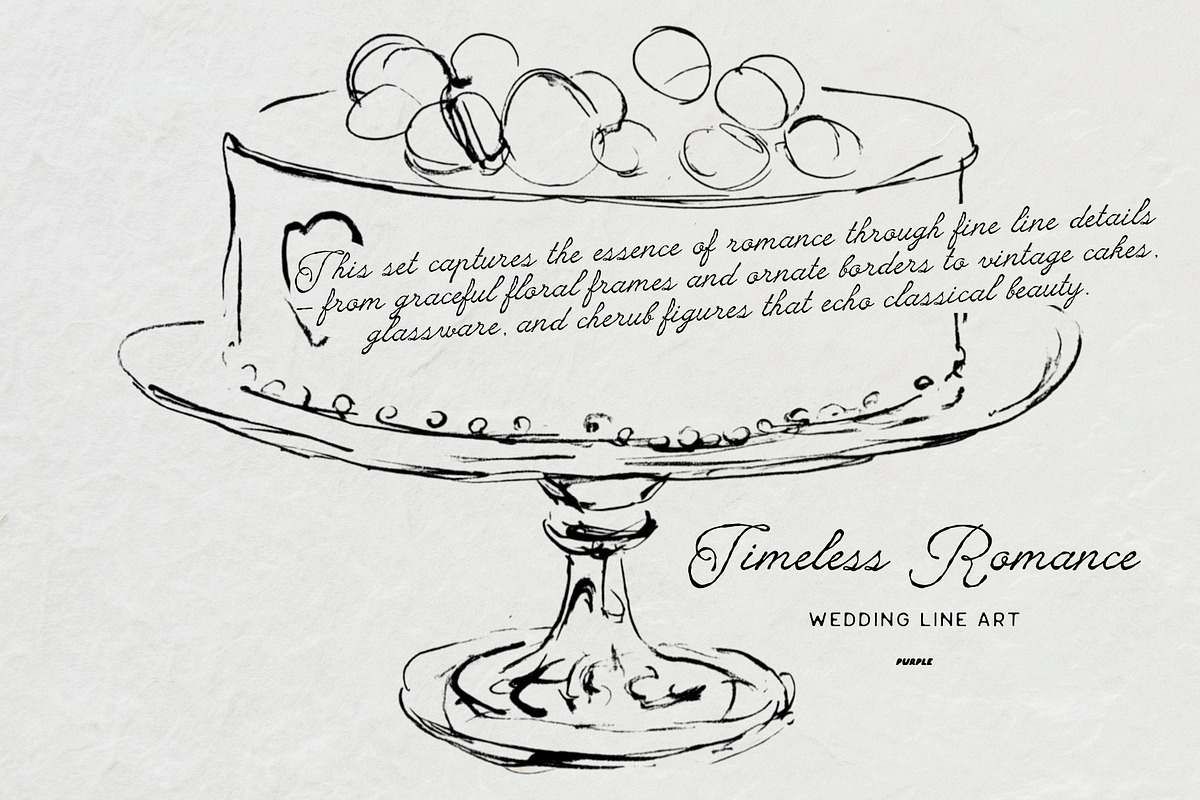 This set captures the essence of romance through fine line details
– from graceful floral frames and ornate borders to vintage cakes,
glassware, and cherub figures that echo classical beauty.
Timeless Romance
WEDDING LINE ART
PURPLE